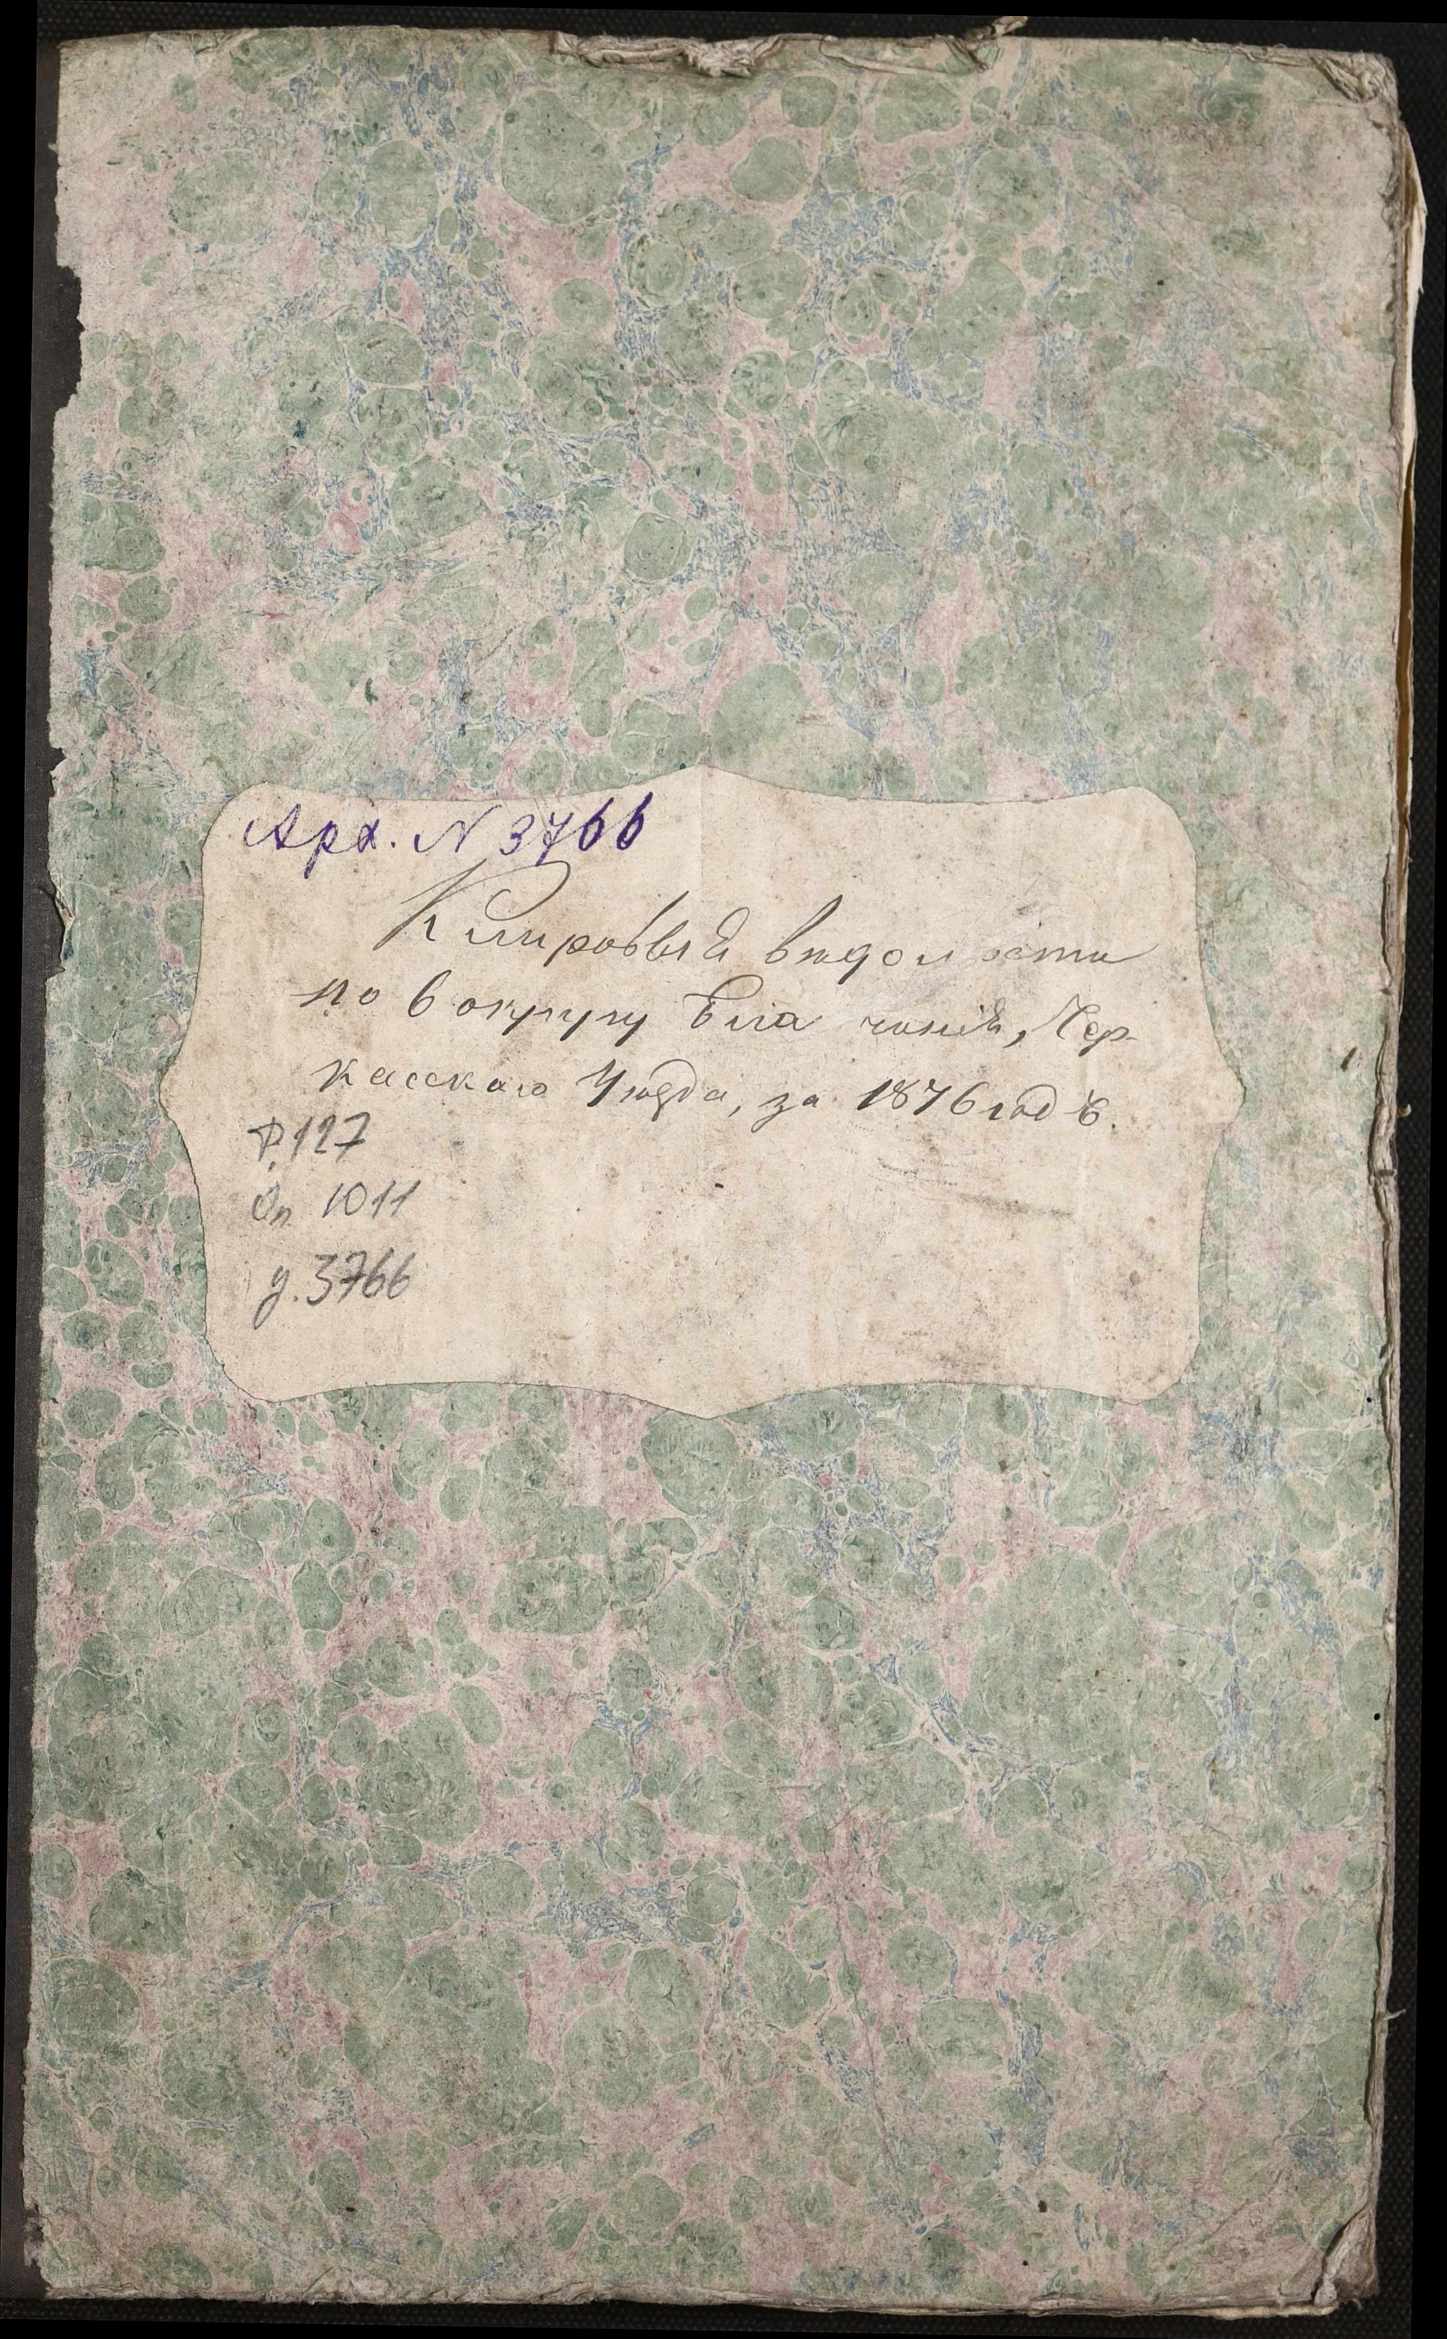 Арх. N 3766
Клировыя вѣдомости
по 6 округу Благочинія, Чер-
касскаго Уѣзда, за 1876 годъ.
Ф. 127
Оп 1011
д. 3766